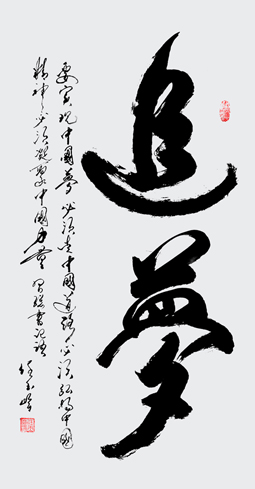 追夢
要实现中國夢必须走中國道路必须弘揚中國
精神必须凝聚中國力量習總書記語